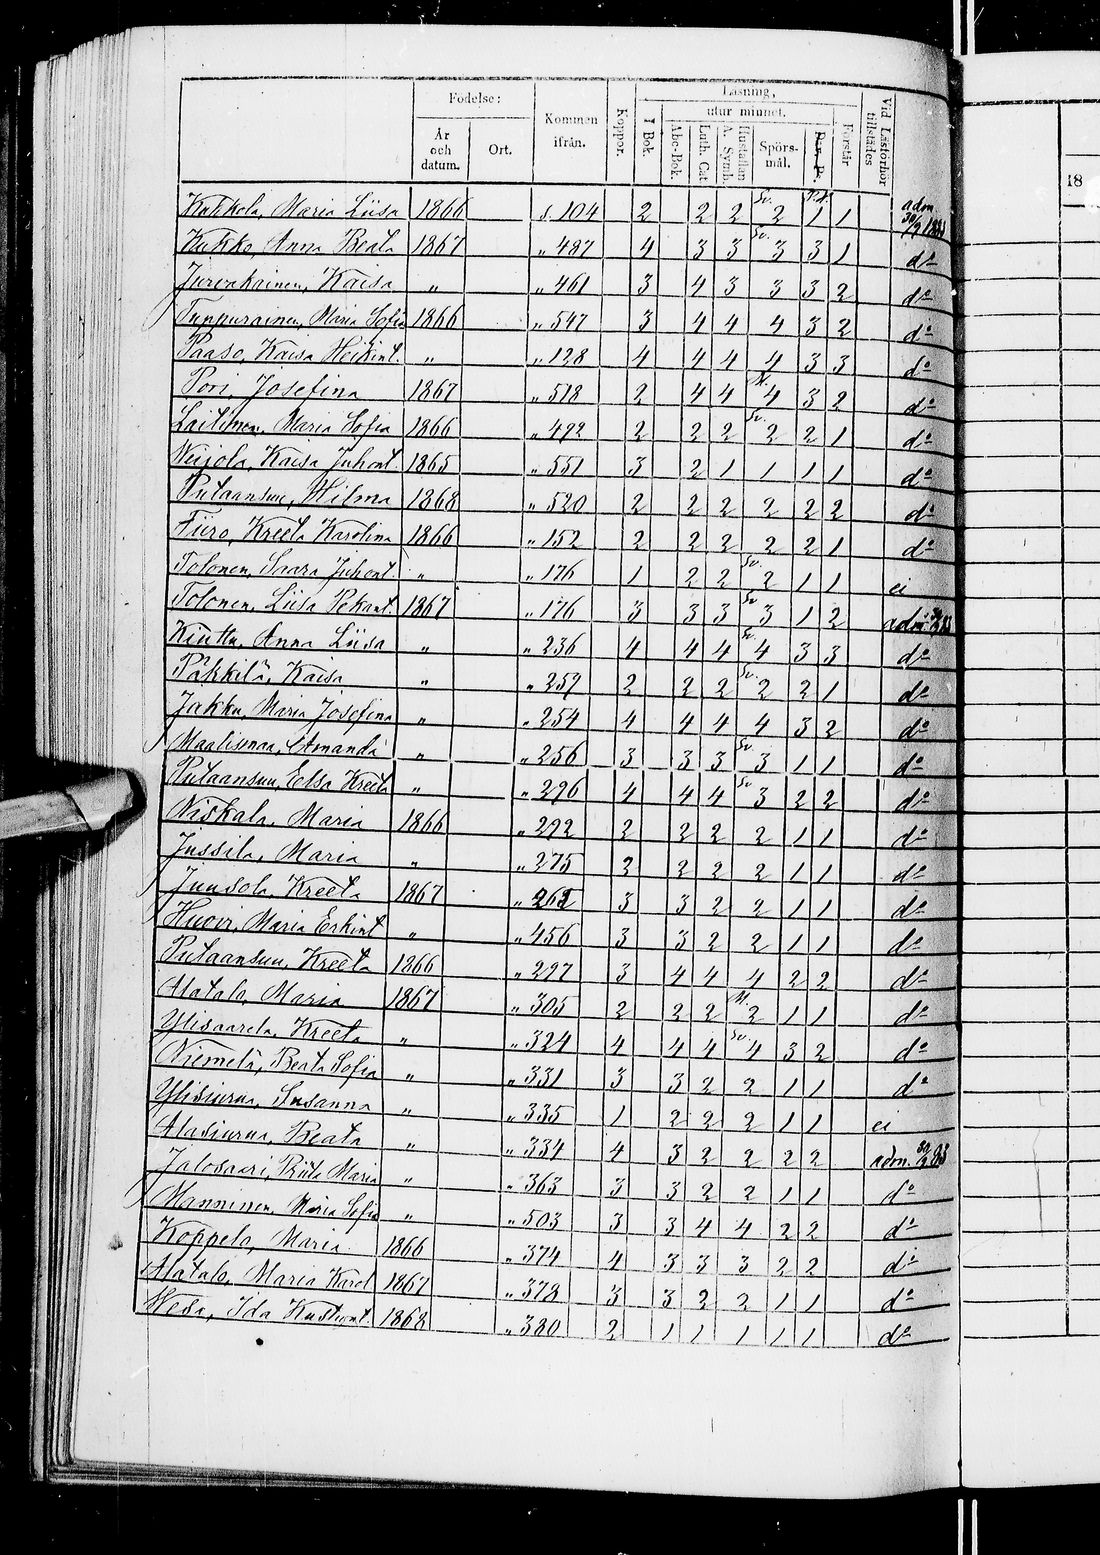 Födelse:
Läsning,
utur minnet.
År och datum.
Ort.
Kommen ifrån.
Koppor.
I Bok.
Abc-Bok.
Luth. Cat.
Hustaflan A. Symb.
Spörs-mål.
Dav. Ps.
Förstår
Vid Läsförhör tillstädes
18
Kukkola, Maria Liisa 1866 s. 104 2 2 2 Sv. 2 1 1 adm. 30/9 1883
Kukko, Anna Beata 1867 " 487 4 3 3 Sv. 3 3 1 do
Jurvakainen, Kaisa " " 461 3 4 3 3 3 2 do
Tuppurainen, Maria Sofia 1866 " 547 3 4 4 4 3 2 do
Paaso, Kaisa Heikint. " " 128 4 4 4 4 3 3 do
Pori, Josefina 1867 " 518 2 4 4 4 3 2 do
Laitinen, Maria Sofia 1866 " 492 2 2 2 Sv. 2 2 1 do
Kaisa Juhont 1865 " 551 3 2 1 1 1 1 do
Putaansuu, Hilma 1868 " 520 2 2 2 2 2 2 do
Kreeta Karolina 1866 " 152 2 2 2 2 2 1 do
Tolonen, Saara Juhont. " " 176 1 2 2 Sv. 2 1 1 ei
Tolonen, Liisa Pekant. 1867 " 176 3 3 3 Sv. 3 1 2 adm.
Kinttu, Anna Liisa " " 236 4 4 4 Sv. 4 3 3 do
Päkkilä, Kaisa " " 257 2 2 2 Sv. 2 2 1 do
Jakku, Maria Josefina " " 254 4 4 4 4 3 2 do
Maalismaa, Amanda " " 256 3 3 3 Sv. 3 1 1 do
Putaansuu, Elsa Kreeta " " 296 4 4 4 Sv 3 2 2 do
Niskala, Maria 1866 " 292 2 2 2 2 1 1 do
Jussila, Maria " " 275 2 2 2 2 1 1 do
Juusola, Kreeta 1867 " 262 3 3 2 2 1 1 do
Huovi, Maria Erkint " " 456 3 3 2 2 1 1 do
Putaansuu, Kreeta 1866 " 297 3 4 4 4 2 2 do
Alatalo, Maria 1867 " 305 2 2 2 2 1 1 do
Ylisaarela, Kreeta " " 324 4 4 4 Sv. 4 3 2 do
Niemelä, Beata Sofia " " 331 3 3 2 2 1 1 do
Ylisiurua, Susanna " " 335 1 2 2 2 1 1 ei
Alasiurua, Beata " " 334 4 3 2 2 2 2 adm. 30/9 83
Jalosaari, Riita Maria " " 363 3 3 2 2 1 1 do
Manninen, Maria Sofia " " 503 3 3 4 4 2 2 do
Koppelo, Maria 1866 " 374 4 3 3 3 2 2 do
Alatalo, Maria Karol 1867 " 378 3 3 2 2 1 1 do
Wesa, Ida Kustront. 1868 " 380 2 1 1 1 1 1 do